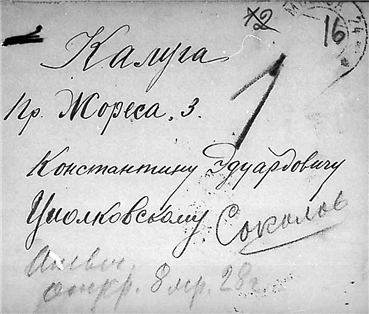 *2
16
Калуга
Пр. Жореса. 3.
Константину Эдуардовичу
Циолковскому. Соколов
откр. 8 мр. 28 г.